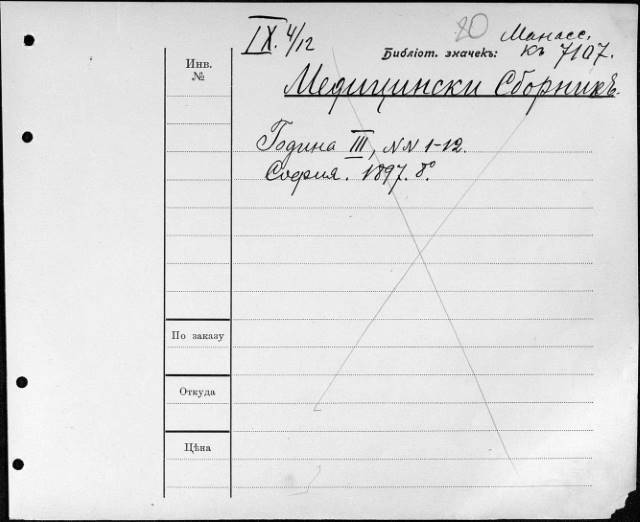 IX. 4/12
20
Манасс.
Библіот. значекъ: Къ 7107.
Инв. №
Медицински Сборникъ.
Година III, NN 1-12.
София. 1897. 8º.
По заказу
Откуда
Цѣна